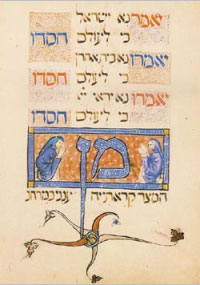 יאמר נא ישראל
כי לעולם חסדו
יאמרו נא בית אהרן
כי לעולם חסדו
יאמרו נא יראי יי
כי לעולם חסדו
מן
המצר קראתי יה ענני במרחב יה